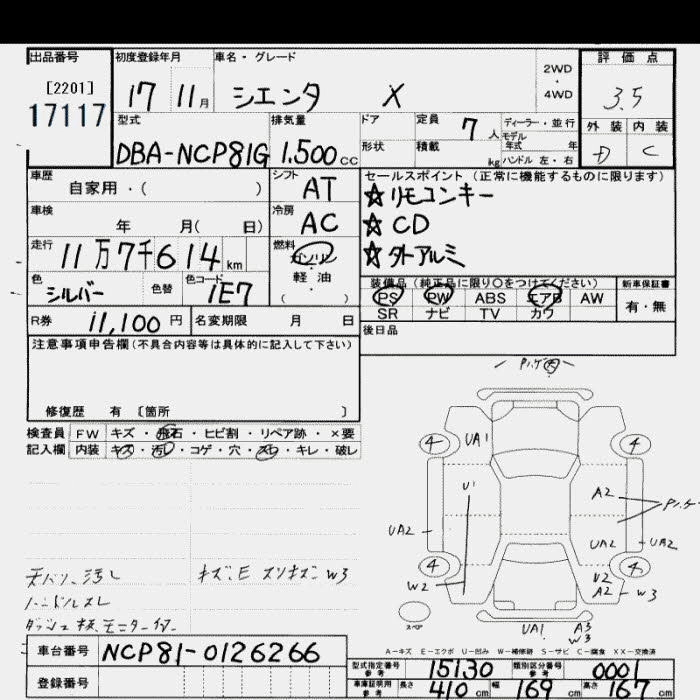 出品番号 初度登録年月 車名・グレード 評価点
[2201]
17117
17 11月 シエンタ X
2WD
・
4WD
3.5
外装 内装
D C
型式 排気量 ドア 定員 7人 ディーラー・並行
モデル
年式 年
DBA-NCP81G 1.500cc 形状 積載 kg ハンドル 左・右
車歴 自家用・( ) シフト AT
セールスポイント (正常に機能するものに限ります)
☆リモコンキー
☆CD
☆外アルミ
車検 年 月( 日) 冷房 AC
走行 11万7千614km 燃料 ガソリン
・
軽油
( )
色 シルバー 色替 色コード 1E7
装備品 (純正品に限り○をつけてください) 新車保証書
PS PW ABS エアB AW 有・無
SR ナビ TV カワ
R券 11,100円 名変期限 月 日
後日品
注意事項申告欄(不具合内容等は具体的に記入して下さい)
修復歴 有 〔箇所 〕
検査員 FW キズ・飛石・ヒビ割・リペア跡・×要
記入欄 内装 キズ・汚レ・コゲ・穴・スレ・キレ・破レ
4 UA1 4
U1 A2
UA2 UA2 UA2
4 W2 U2 4
A2 W3
スペア
UA1 A3
W3
天バリ汚レ キズ、E スリキズ W3
ハンドルスレ
A-キズ E-エクボ U-凹み W-補修跡 S-サビ C-腐食 XX-交換済
車台番号 NCP81-0126266
登録番号
型式指定番号 参考 15130 類別区分番号 参考 0001
車庫証明用 参考 長さ 410cm 幅 169cm 高さ 167cm